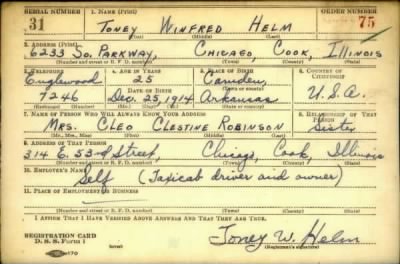 SERIAL NUMBER 1. NAME (Print) ORDER NUMBER
31 TONEY WINFRED HELM 75
(First) (Middle) (Last)
2. ADDRESS (Print)
6233 SO. PARKWAY, CHICAGO, COOK, ILLINOIS
(Number and street or R. F. D. number) (Town) (County) (State)
3. TELEPHONE 4. AGE IN YEARS 5. PLACE OF BIRTH 6. COUNTRY OF CITIZENSHIP
Englewood 25 Camden,
7246 Dec. 25, 1914 Arkansas U.S.A.
7. NAME OF PERSON WHO WILL ALWAYS KNOW YOUR ADDRESS 8. RELATIONSHIP OF THAT PERSON
MRS. CLEO CLESTINE ROBINSON Sister
(Mr., Mrs., Miss) (First) (Middle) (Last)
9. ADDRESS OF THAT PERSON
314 E. 53rd Street, Chicago, Cook, Illinois
(Number and street or R. F. D. number) (Town) (County) (State)
10. EMPLOYER'S NAME
Self (Taxicab driver and owner)
11. PLACE OF EMPLOYMENT OR BUSINESS
(Number and street or R. F. D. number) (Town) (County) (State)
I AFFIRM THAT I HAVE VERIFIED ABOVE ANSWERS AND THAT THEY ARE TRUE.
REGISTRATION CARD
D. S. S. Form 1 (over) Toney W. Helm
(Registrant's signature)